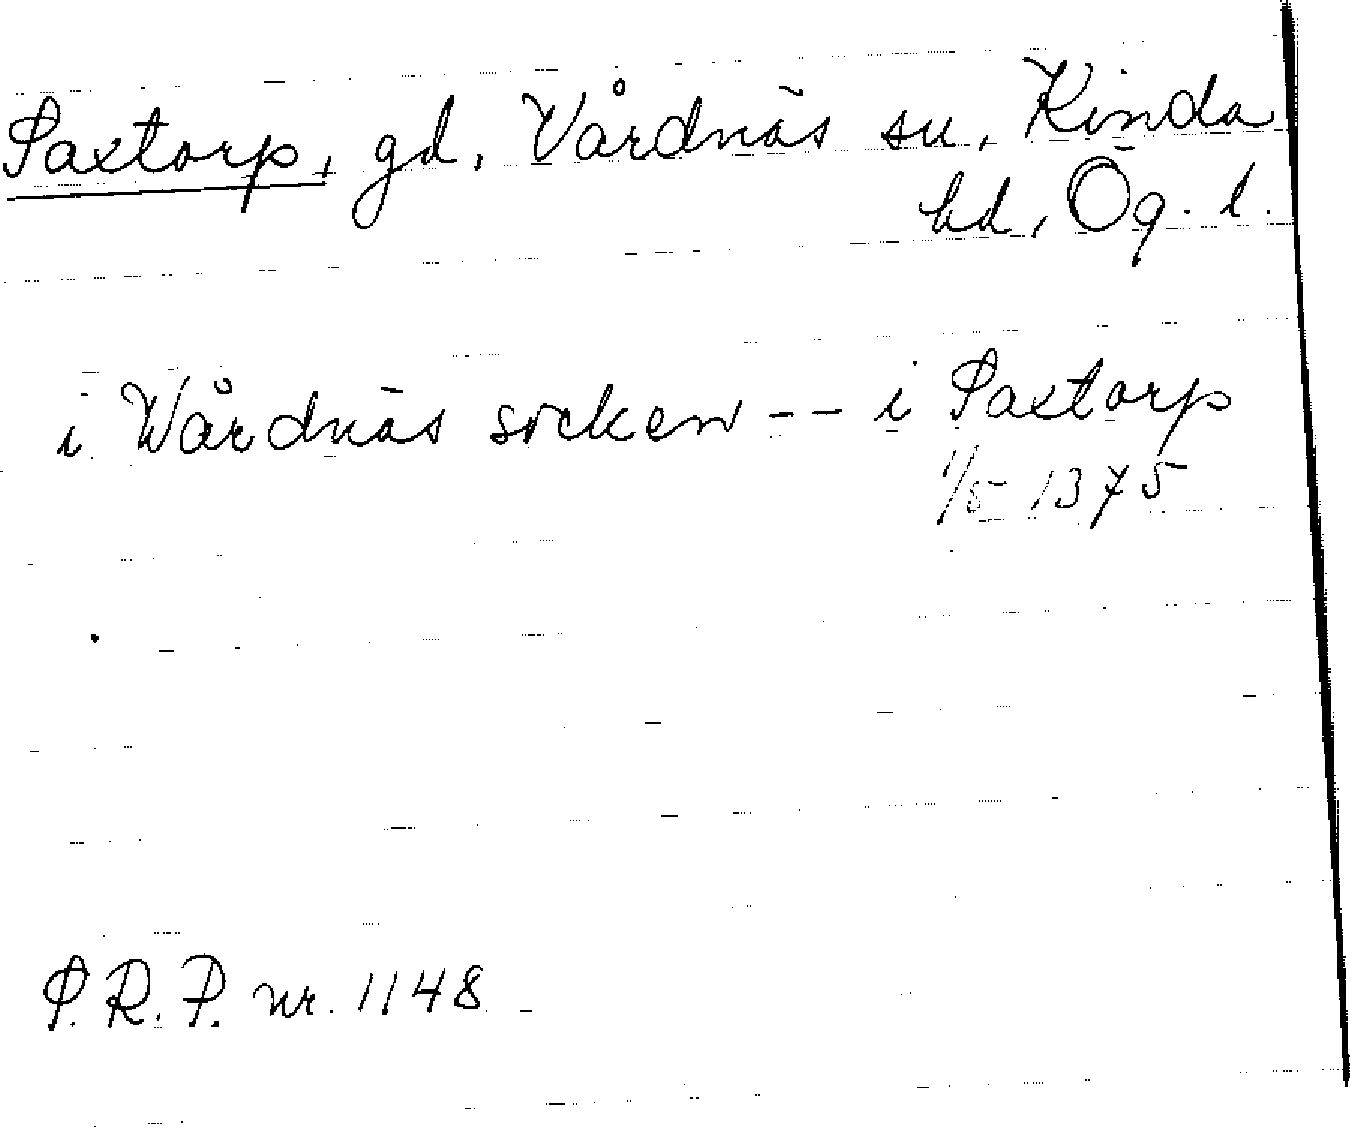 Saxtorp, gd, Vårdnäs sn, Kinda
hd, Ög. l.
i Wårdnäs socken -- i Saxtorp
1/5 1375
S.R.P. nr. 1148